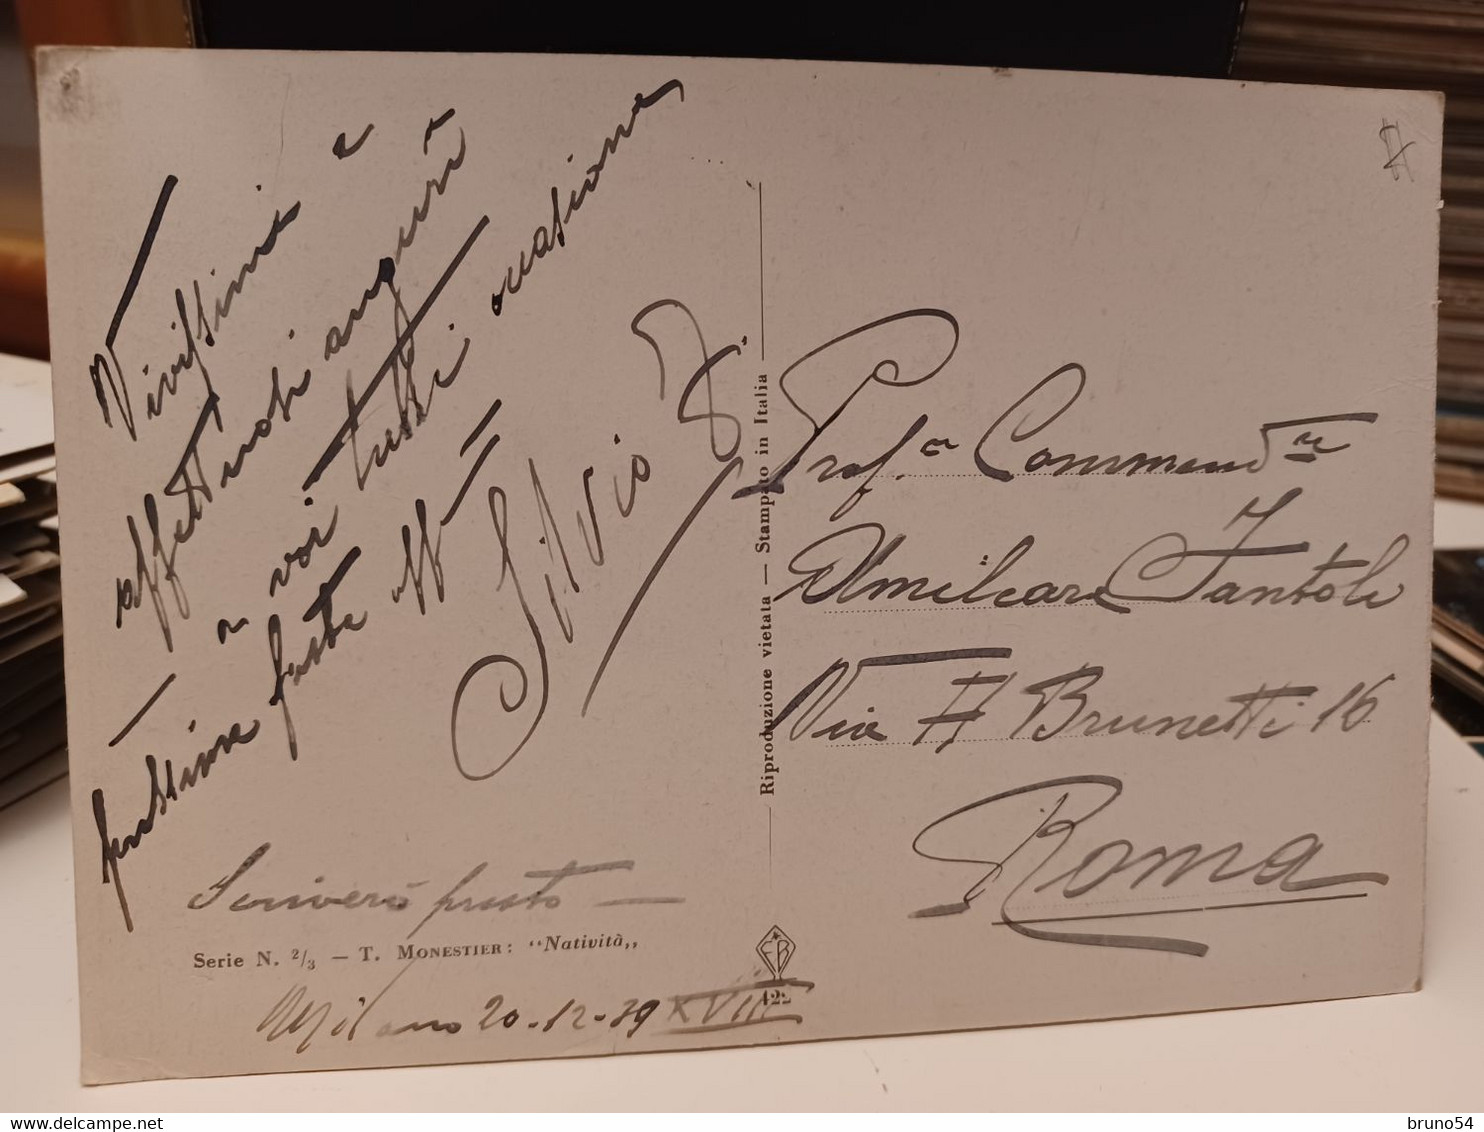 Vivissimi e
affettuosi auguri
a voi tutti
per occasione
prossime feste
Silvio
Scriverò presto —
Serie N. 2/3 — T. Monestier: “Natività„
Milano 20-12-39 XVIII
Riproduzione vietata — Stampato in Italia
FB
422
Prof.
Amilcare Fantoli
Via F Brunetti 16
Roma
bruno54